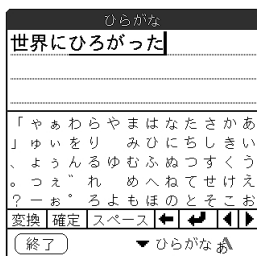 ひらがな
世界にひろがった
「ゃぁわらやまはなたさかあ
」ゅぃをり みひにちしきい
、ょぅんるゆむふぬつすくう
。っぇ゛れ めへねてせけえ
？ーぉ゜ろよもほのとそこお
変換 確定 スペース
終了 ▼ひらがな あA